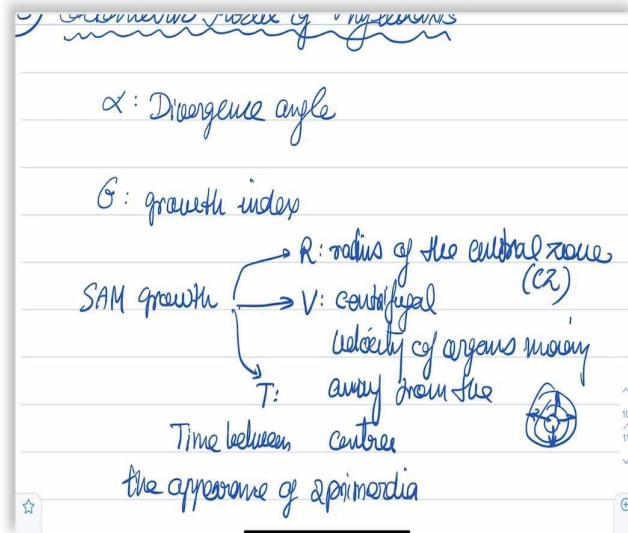 α : Divergence angle
G : growth index
R : radius of the central zone
(CZ)
SAM growth
V : centrifugal
velocity of organs moving
away from the
centre
T :
Time between
the appearance of 2 primordia